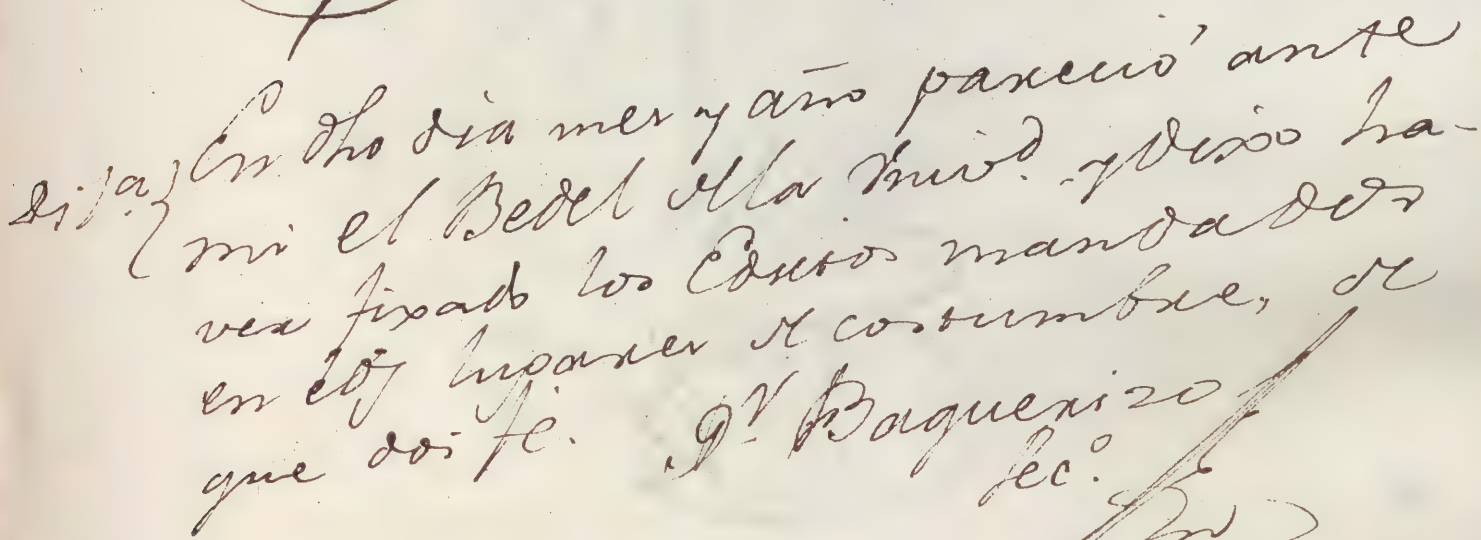 En dho dia mes y año pareció ante
Dilª} mi el Bedel de la Univd. y dixo ha-
ver fixado los Edictos mandados
en los lugares de costumbre, de
que doi fe. Dr. Baquerizo
Secº.